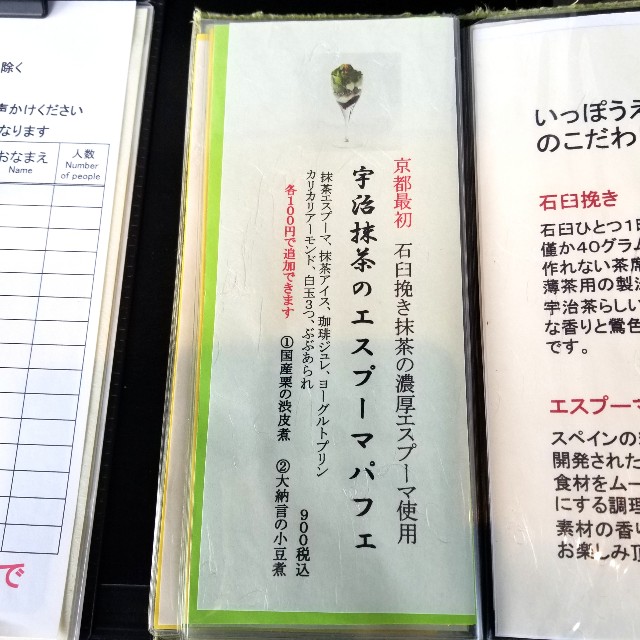 除く
声かけください
なります
おなまえ
Name
人数
Number
of people
で
京都最初 石臼挽き抹茶の濃厚エスプーマ使用
宇治抹茶のエスプーマパフェ
抹茶エスプーマ、抹茶アイス、珈琲ジュレ、ヨーグルトプリン
カリカリアーモンド、白玉3つ、ぶぶあられ
900税込
各100円で追加できます ①国産栗の渋皮煮 ②大納言の小豆煮
いっぽうえ
のこだわ
石臼挽き
石臼ひとつ1時
僅か40グラム
作れない茶席
薄茶用の製法
宇治茶らしい
な香りと鶯色
です。
エスプーマ
スペインの
開発された
食材をムー
にする調理
素材の香り
お楽しみ頂